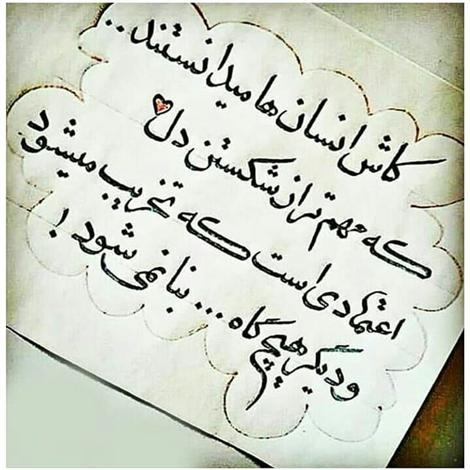 کاش انسان ها میدانستند..
که مهم تر از شکستن دل
اعتمادی است که تخریب میشود
و دیگر هیچ گاه ... بنا نمی شود!